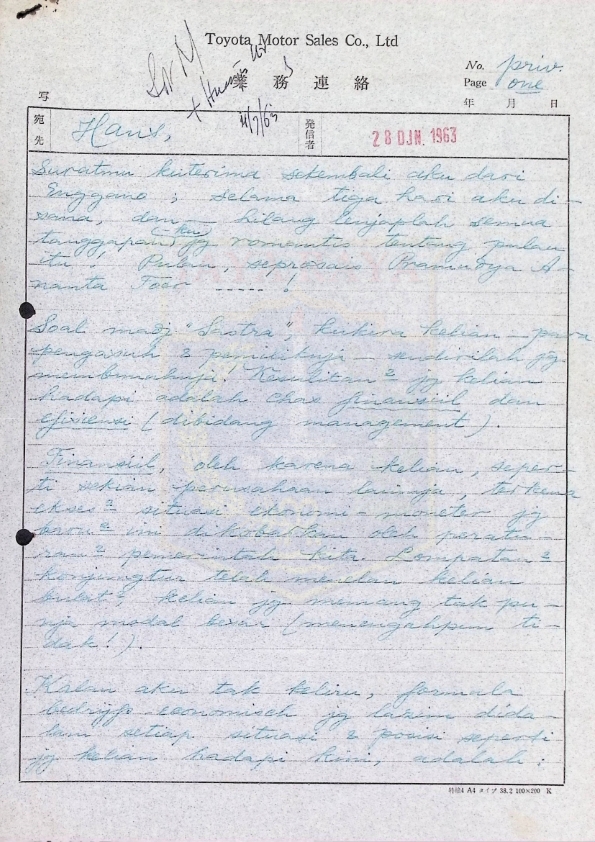 Toyota Motor Sales Co., Ltd
業 務 連 絡
No. priv.
Page one
年 月 日
写
4/7/63
宛先 Hans,
発信者 28 JUN. 1963
Suratmu kuterima sekembali aku dari
Enggano ; selama tiga hari aku di-
sana, dan — hilang lenjaplah semua
tanggapan(-ku) jg romantis tentang pulau
itu ! Pulau, seprosais Pramudya A-
nanta Toer ----- !
Soal madj "Sastra", kukira kelian — para
pengasuh2 & pemiliknja — sendirilah jg
membunuhnja. Kesulitan2 jg kelian
hadapi adalah chas finansiil dan
efisiensi (dibidang management).
Finansiil, oleh karena kelian, seper-
ti sekian perusahaan lainnja, terkena
ekses2 situasi ekonomi-moneter jg
baru2 ini dikobarkan oleh peratu-
ran2 pemerintah kita. Lompatan2
konjungtur telah menelan kelian
bulat2, kelian jg memang tak pu-
nja modal besar (menengahpun ti-
dak!).
Kalau aku tak keliru, formula
bedrijfs-economisch jg lazim dida-
lam setiap situasi & posisi seperti
jg kelian hadapi kini, adalah :
A4 タイプ 38.2 100×200 K